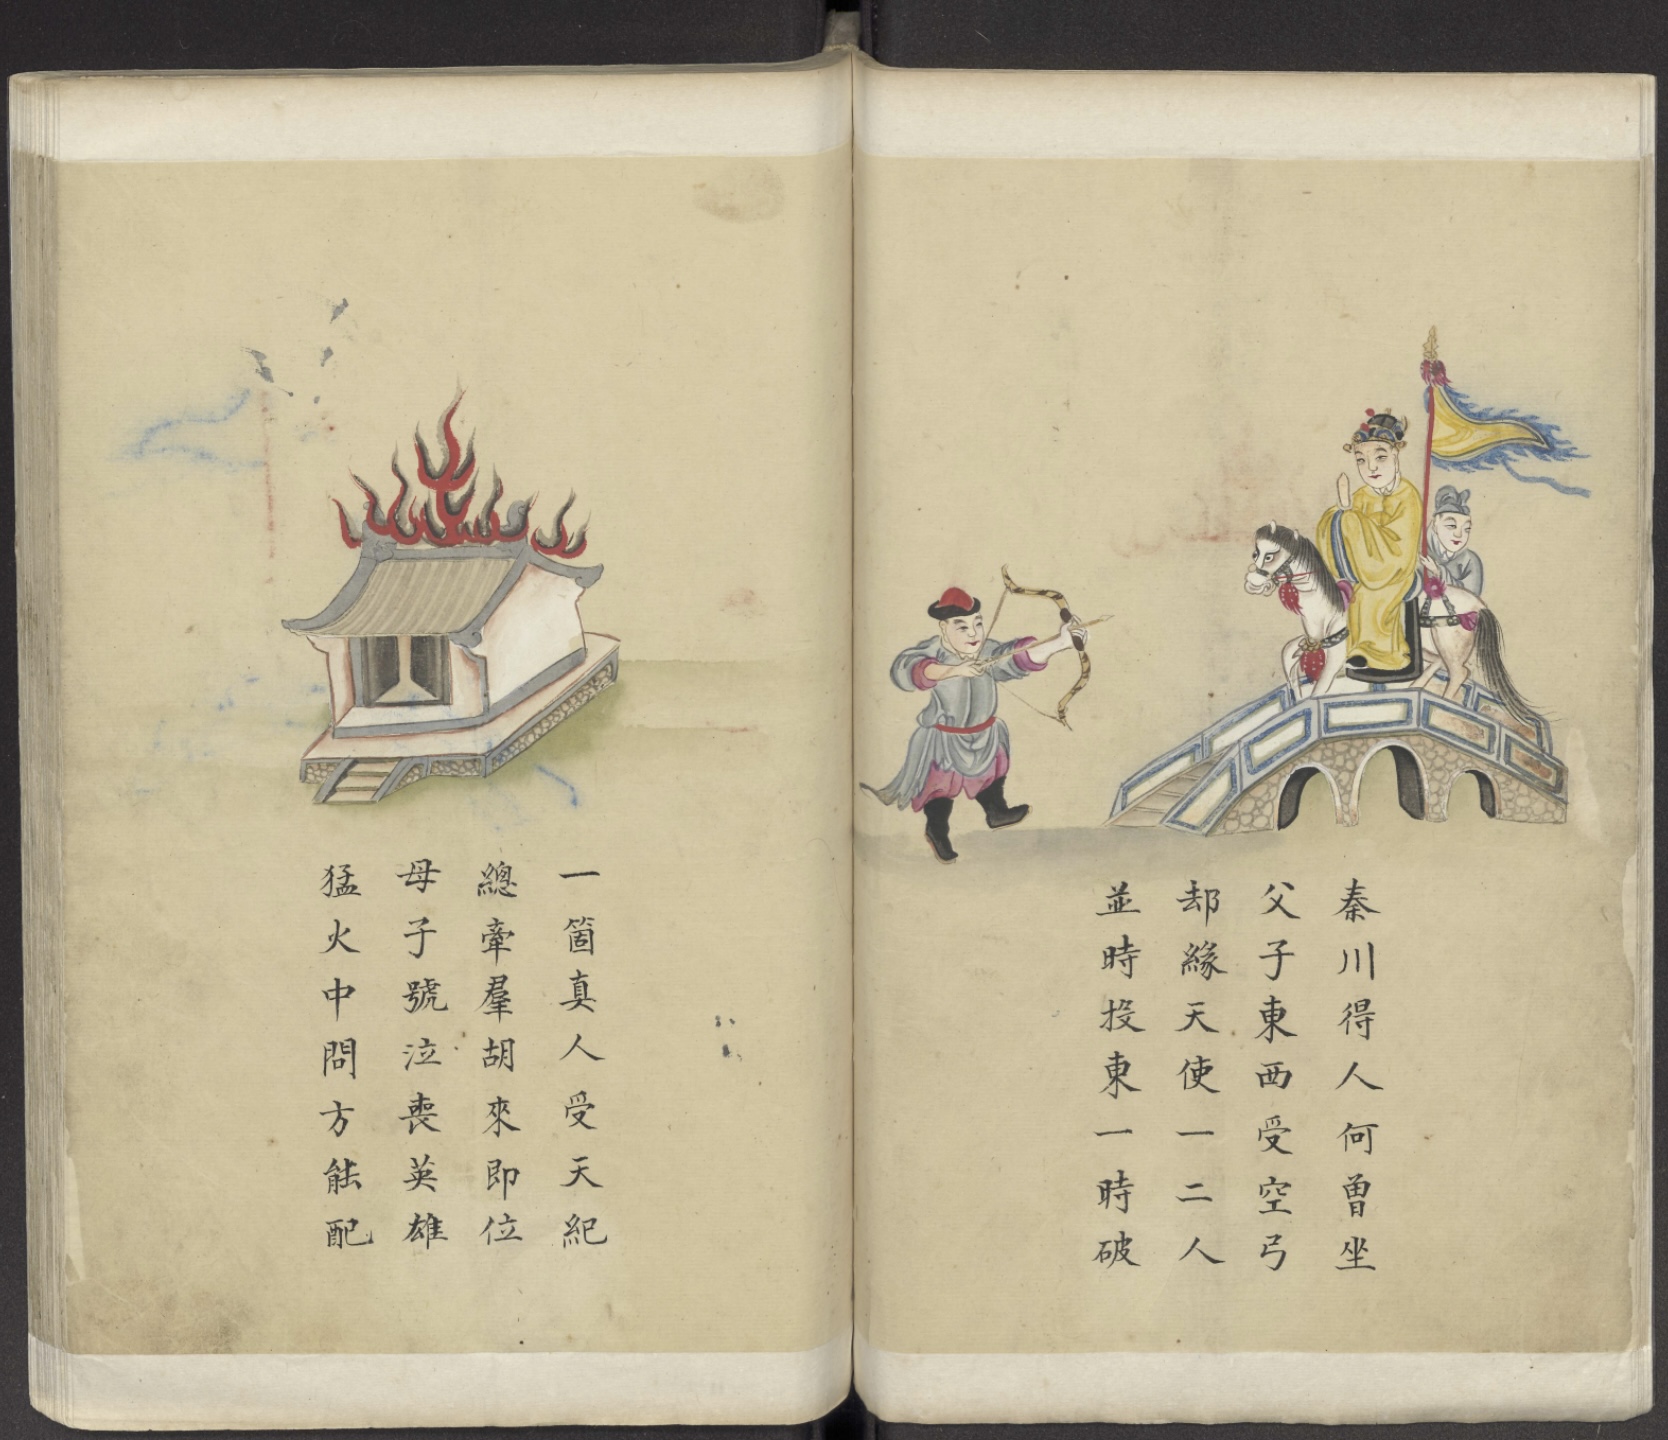 秦川得人何曽坐
父子東西受空弓
却緣天使一二人
並時投東一時破
一箇真人受天紀
總牽羣胡來即位
母子號泣喪英雄
猛火中問方能配